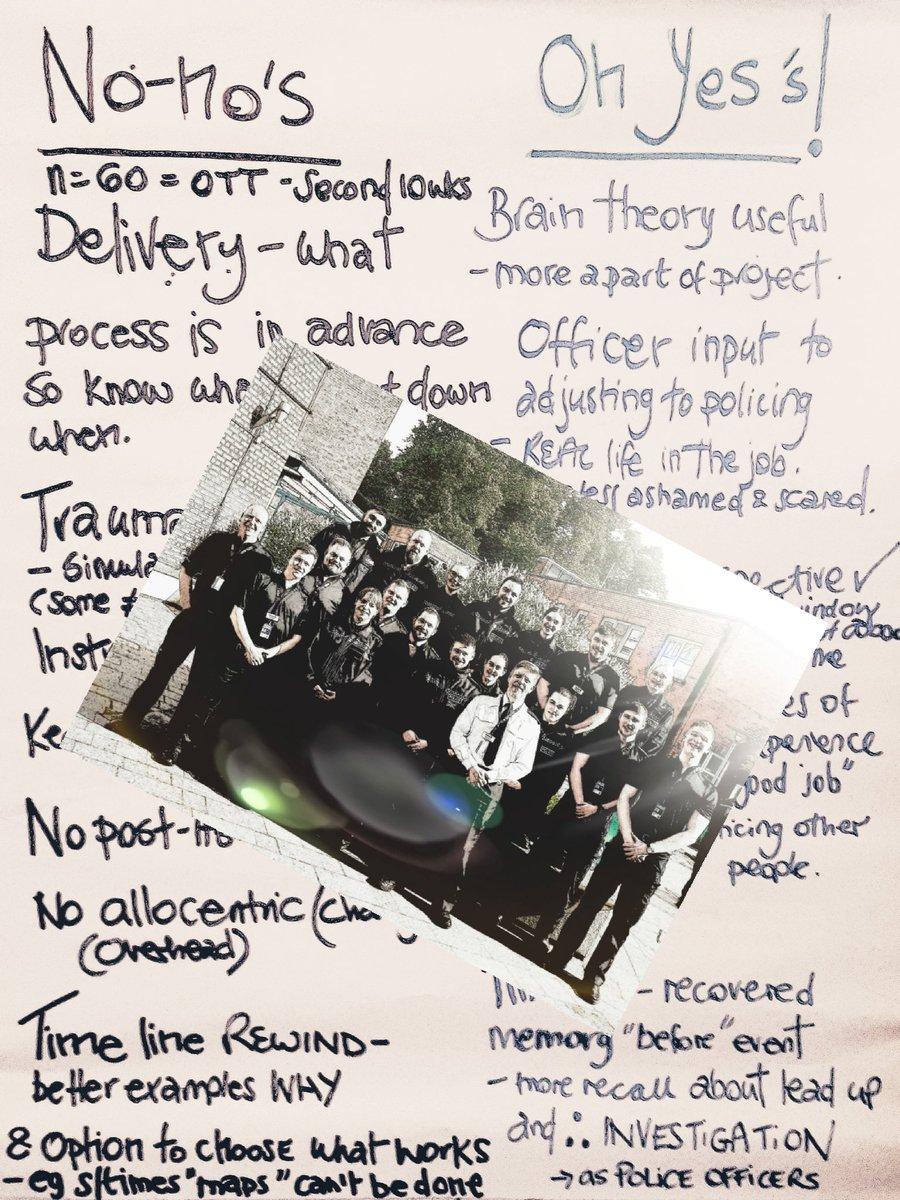 No-no's
n=60 = OTT - Second 10wks
Delivery - what
process is in advance
so know down
when.
Trauma
- Simula
(some ≠
Instr
Ke
No post-ho
No allocentric (cha
(Overhead)
Time line REWIND-
better examples WHY
& Option to choose what works
- eg s/times "maps" can't be done
Oh Yes's!
Brain theory useful
- more a part of project.
Officer input to
adjusting to policing
- REAL life in the job.
less ashamed & scared.
pective ✓
window
me
es of
perience
good job"
ticing other
people.
- recovered
memory "before" event
- more recall about lead up
and ∴ INVESTIGATION
→ as POLICE OFFICERS